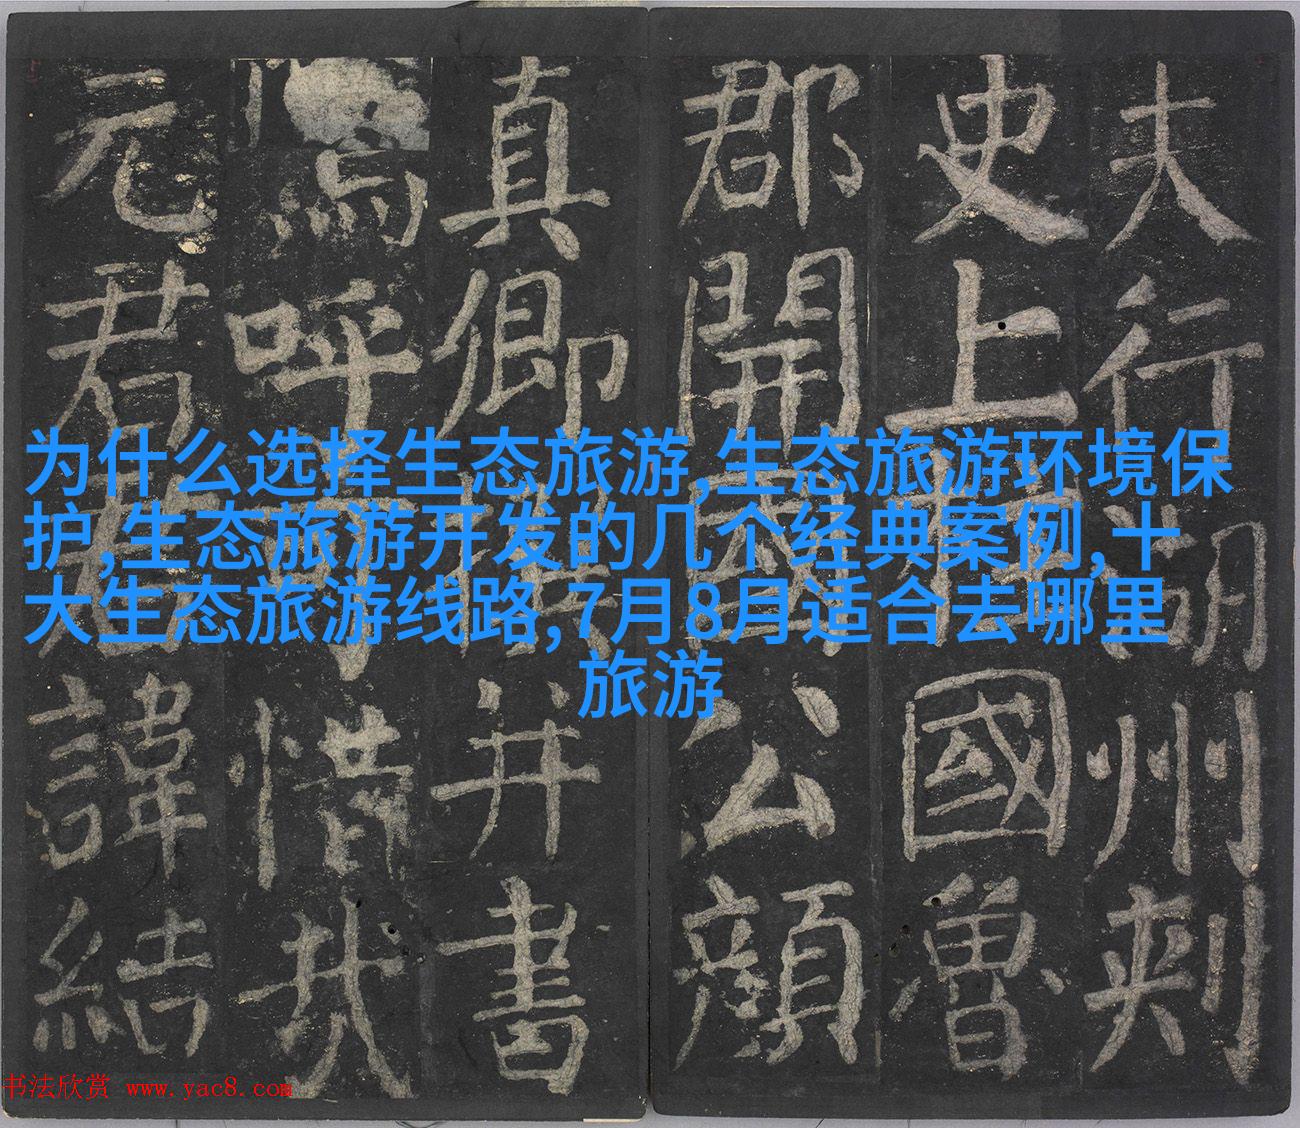 大行湖州刺
史上柱國魯
郡開國公顔
真卿撰并書
嗚呼可惜哉
元君君諱結
为什么选择生态旅游,生态旅游环境保
护,生态旅游开发的几个经典案例,十
大生态旅游线路,7月8月适合去哪里
旅游
书法欣赏 www.yac8.com